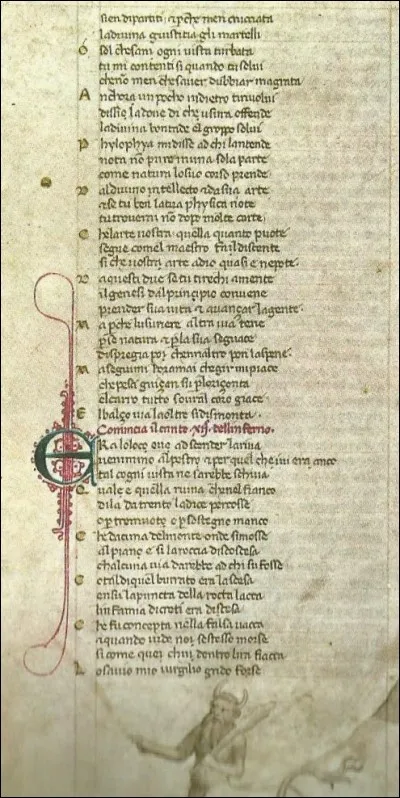 sien dipartiti · ⁊ pche men crucciata
la diuina giustitia gli martelli
O sol che sani ogni uista turbata
tu mi contenti si quando tu solui
che nō men che sauer dubbiar magrata
A nchora un pocho indietro ti riuolui
diss io la doue di che usura offende
la diuina bontade el groppo solui
P hylophya mi disse ad chi lantende
nota nō pure in una sola parte
come natura lo suo corso prende·
D al diuino intellecto ⁊ da sua arte
⁊ se tu ben la tua physica note
tu trouerai nō dopo molte carte
C he larte nostra quella quanto puote
segue comel maestro fa il discente
si che nostra arte adio quasi e nepote·
D a queste due se tu ti rechi amente
il genesi dal principio conuene
prender sua uita ⁊ auançar la gente·
M a pche lusuriere altra uia tene
pse natura ⁊ p la sua seguace
dispregia poi chennaltro pon laspene·
M a seguimi oramai chegir mi piace
che pesci guiçan su per loriçonta
el carro tutto soural coro giace
E lbalço uia la oltre si dismonta·
Comincia il canto xij· dellinferno·
E Ra lo loco oue ad scender la riua
uenimmo alpestro ⁊ per quel che iui era anco
tal cogni uista ne sarebbe schiua
Q uale e quella ruina che nel fianco
di la da trento ladice percosse
o p tremuoto o p sostegno manco
C he da cima del monte onde si mosse
al piano e si la roccia discoscesa
chalcuna uia darebbe ad chi su fosse
C otal di quel burrato era la scesa
en su la puncta della rocta lacca
linfamia di creti era distesa
C he fu concepta nella falsa uacca
⁊ quando uide noi se stesso morse
si come quei chui dentro lira fiacca
L o sauio mio uirgilio grido forse